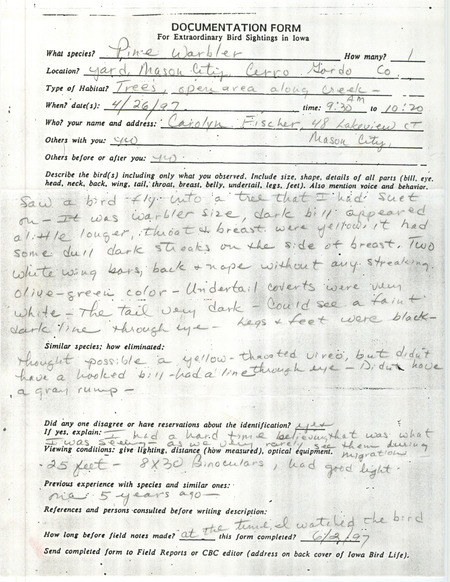 DOCUMENTATION FORM
For Extraordinary Bird Sightings in Iowa
What species? Pine Warbler How many? 1
Location? yard, Mason City, Cerro Gordo Co
Type of Habitat? Trees, open area along creek -
When? date(s): 4/26/97 time: 9:30 AM to 10:20
Who? your name and address: Carolyn Fischer, 48 Lakeview CT
Others with you: no Mason City,
Others before or after you: no.
Describe the bird(s) including only what you observed. Include size, shape, details of all parts (bill, eye,
head, neck, back, wing, tail, throat, breast, belly, undertail, legs, feet). Also mention voice and behavior.
Saw a bird fly into a tree that I had suet
on - It was warbler size, dark bill appeared
a little longer, throat & breast were yellow, it had
some dull dark streaks on the side of breast. Two
white wing bars, back & nape without any streaking.
Olive-green color - Undertail coverts were very
white - The tail very dark - Could see a faint
dark line through eye - Legs & feet were black -
Similar species; how eliminated:
thought possible a yellow-throated vireo, but didn't
have a hooked bill - had a line through eye - Didn't have
a gray rump -
Did any one disagree or have reservations about the identification? yes
If yes, explain: I had a hard time believing that was what
I was seeing - as we very rarely see them during
migration
Viewing conditions: give lighting, distance (how measured), optical equipment.
25 feet - 8X30 Binoculars, had good light.
Previous experience with species and similar ones:
one 5 years ago -
References and persons consulted before writing description:
How long before field notes made? at the time, I watched the bird
this form completed? 6/2/97
Send completed form to Field Reports or CBC editor (address on back cover of Iowa Bird Life).